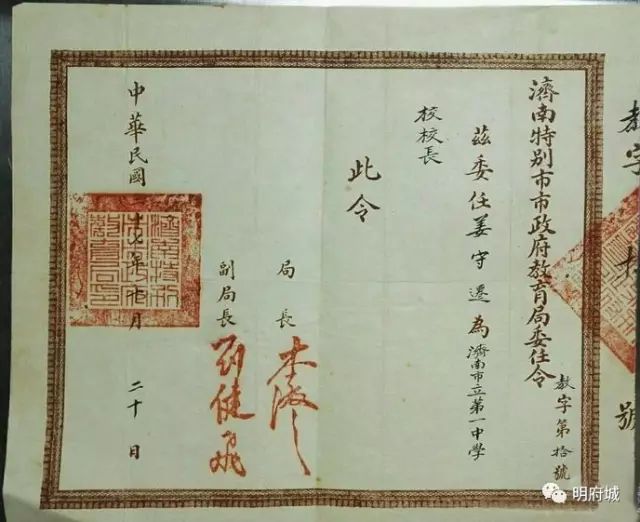 教字 號
濟南特别市市政府教育局委任令
教字第拾號
茲委任姜守遷為濟南市立第一中學
校校長
此令
局長
副局長 劉健飛
中華民國
月二十日
明府城